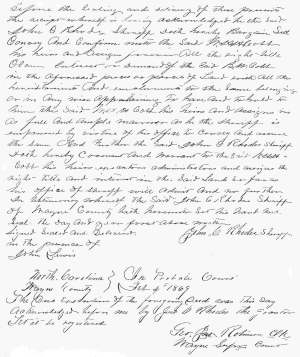 before the sealing and delivery of these presents
the receipt whereof is hereby acknowledged he the said
John C Rhodes Sheriff doth hereby Bargain Sell
Convey And Confirm unto the said
his heirs and assigns forever All the right title
Claim interest and demand of the said
in the aforesaid piece or parcel of Land with All the
hereditaments And to the same belonging
or in Any wise Appertaining to have And to hold to
him the said his heirs And Assigns in
as full and Ample manner As he the Sheriff is
empowered by virtue of his office to Convey And assure
the same And Further the said John C Rhodes Sheriff
doth hereby Covenant And Warrant to the said
his heirs executors administrators and assigns the
right title And interest in the said Land as far as
his office of Sheriff will Admit And no further
In testimony whereof The Said John C Rhodes Sheriff
of Wayne County hath hereunto set his hand And
seal the day And year first above written
Signed Sealed and Delivered John C Rhodes Sheriff
in the presence of
John Lewis
North Carolina } In Probate Court
Wayne County } Feb 1869
The Due Execution of the foregoing deed was this Day
Acknowledged before me by Jno C Rhodes the
Let it be registered
Wayne Court